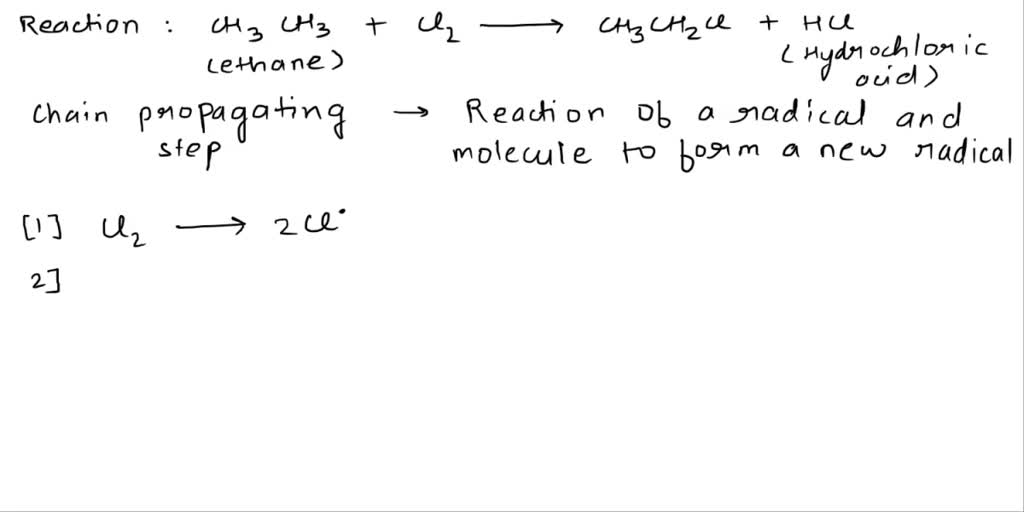 Reaction : CH3 CH3 + Cl2 → CH3CH2Cl + HCl
(ethane) (Hydrochloric acid)
Chain propagating step → Reaction of a radical and molecule to form a new radical
[1] Cl2 → 2Cl•
2]